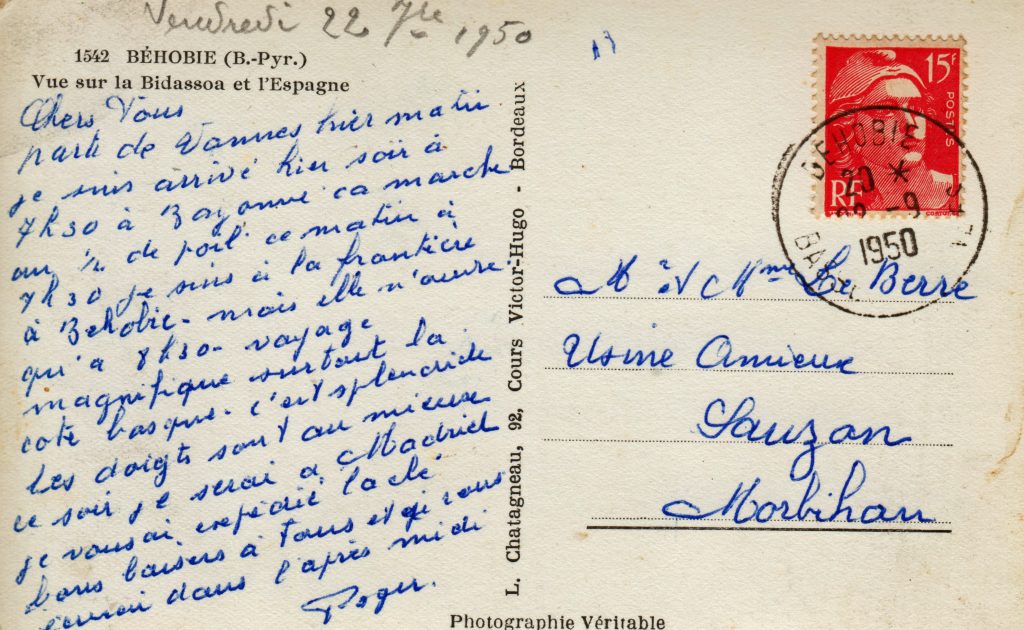 Vendredi 22 7bre 1950
1542 BÉHOBIE (B.-Pyr.)
Vue sur la Bidassoa et l'Espagne
Chers Vous
parti de Vannes hier matin
je suis arrivé hier soir à
7h30 à Bayonne ca marche
au ½ de poil. ce matin à
7h30 je suis à la frontière
à Behobie. mais elle n'ouvre
qu'a 8h30. voyage
magnifique surtout la
cote basque. c'est splendide
les doigts sont au mieux
ce soir je serai a Madrid
je vous ai expédié la clé
bons baisers à tous et je vous
écrirai dans l'après midi
Roger.
L. Chatagneau, 92, Cours Victor-Hugo - Bordeaux
Photographie Véritable
15F
POSTES
RF
BEHOBIE
20 *
-9
1950
Mr et Mme Le Berre
Usine Amieux
Sauzon
Morbihan